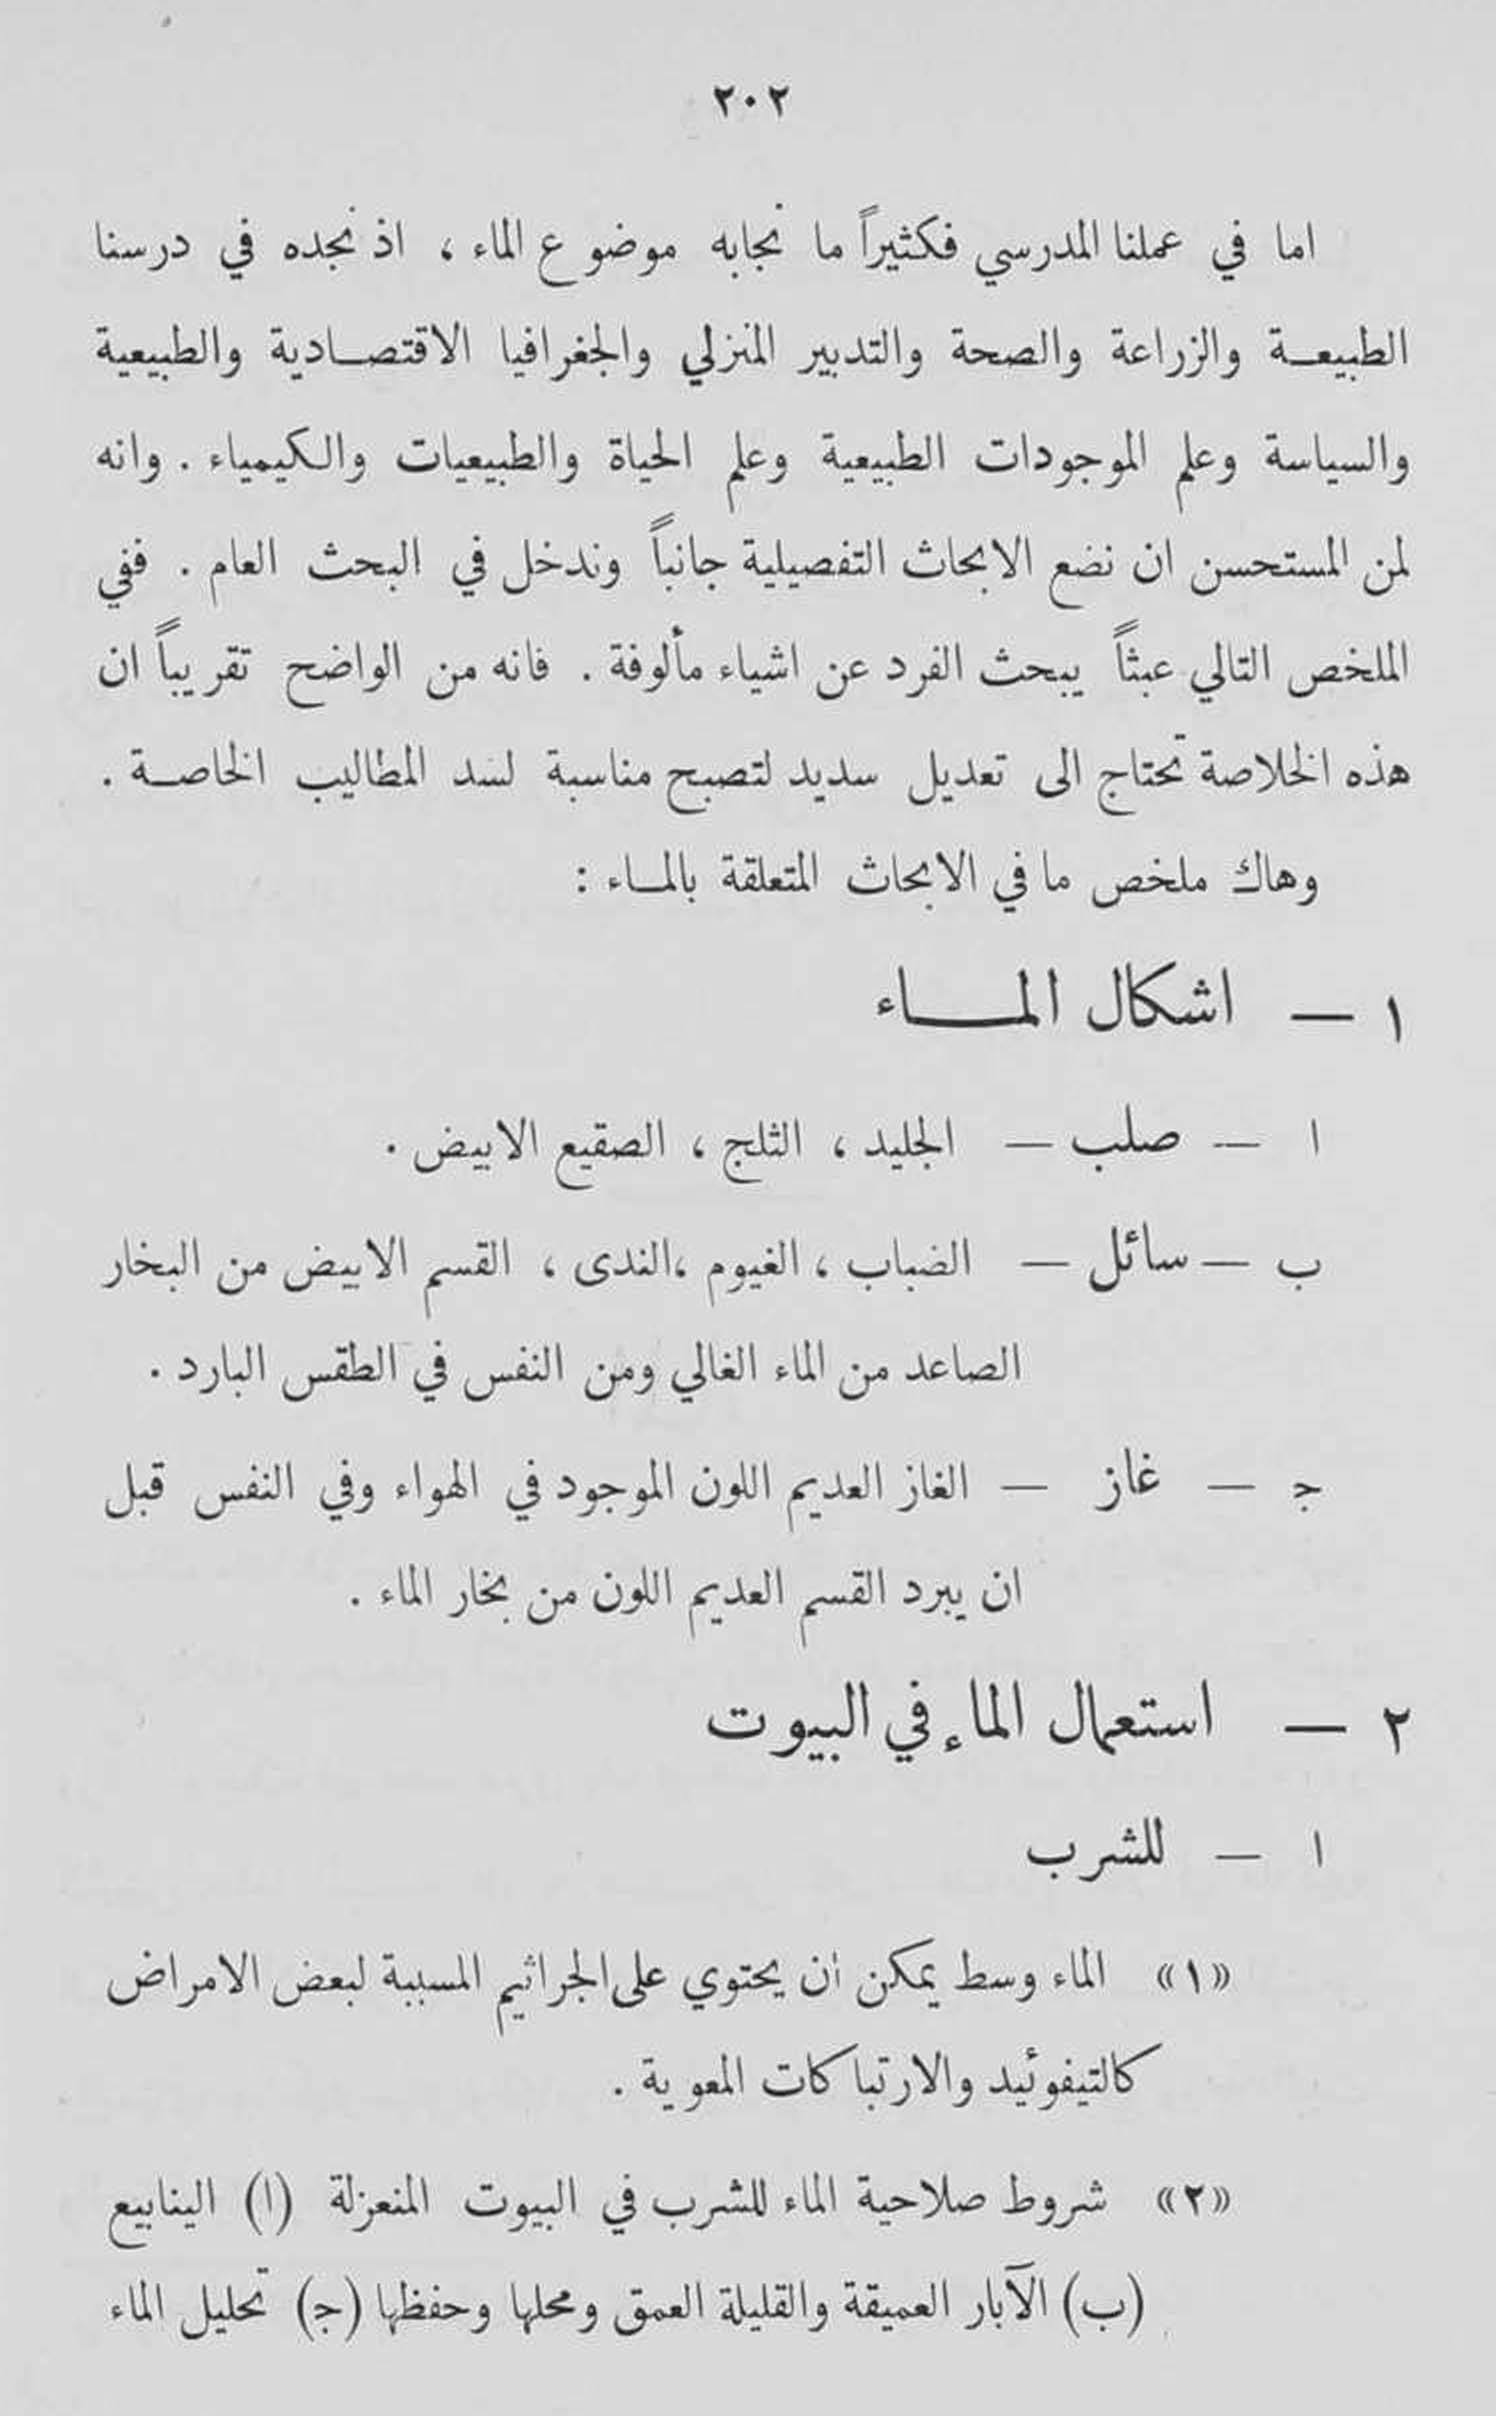 ٢٠٢
اما في عملنا المدرسي فكثيراً ما نجابه موضوع الماء ، اذ نجده في درسنا
الطبيعة والزراعة والصحة والتدبير المنزلي والجغرافيا الاقتصادية والطبيعية
والسياسة وعلم الموجودات الطبيعية وعلم الحياة والطبيعيات والكيمياء . وانه
لمن المستحسن ان نضع الابحاث التفصيلية جانباً وندخل في البحث العام . ففي
الملخص التالي عبثاً يبحث الفرد عن اشياء مألوفة . فانه من الواضح تقريباً ان
هذه الخلاصة تحتاج الى تعديل سديد لتصبح مناسبة لسد المطاليب الخاصة .
وهاك ملخص ما في الابحاث المتعلقة بالماء :
١ — اشكال الماء
ا — صلب — الجليد ، الثلج ، الصقيع الابيض .
ب — سائل — الضباب ، الغيوم ،الندى ، القسم الابيض من البخار
الصاعد من الماء الغالي ومن النفس في الطقس البارد .
ج — غاز — الغاز العديم اللون الموجود في الهواء وفي النفس قبل
ان يبرد القسم العديم اللون من بخار الماء .
٢ — استعمال الماء في البيوت
ا — للشرب
«١» الماء وسط يمكن أن يحتوي على الجراثيم المسببة لبعض الامراض
كالتيفوئيد والارتباكات المعوية .
«٢» شروط صلاحية الماء للشرب في البيوت المنعزلة (ا) الينابيع
(ب) الآبار العميقة والقليلة العمق ومحلها وحفظها (ج) تحليل الماء